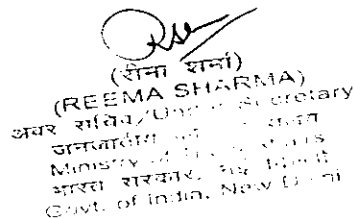 (रीना शर्मा)
(REEMA SHARMA)
अवर सचिव/Under Secretary
जनजातीय
Ministry of
भारत सरकार, नई दिल्ली
Govt. of India, New Delhi